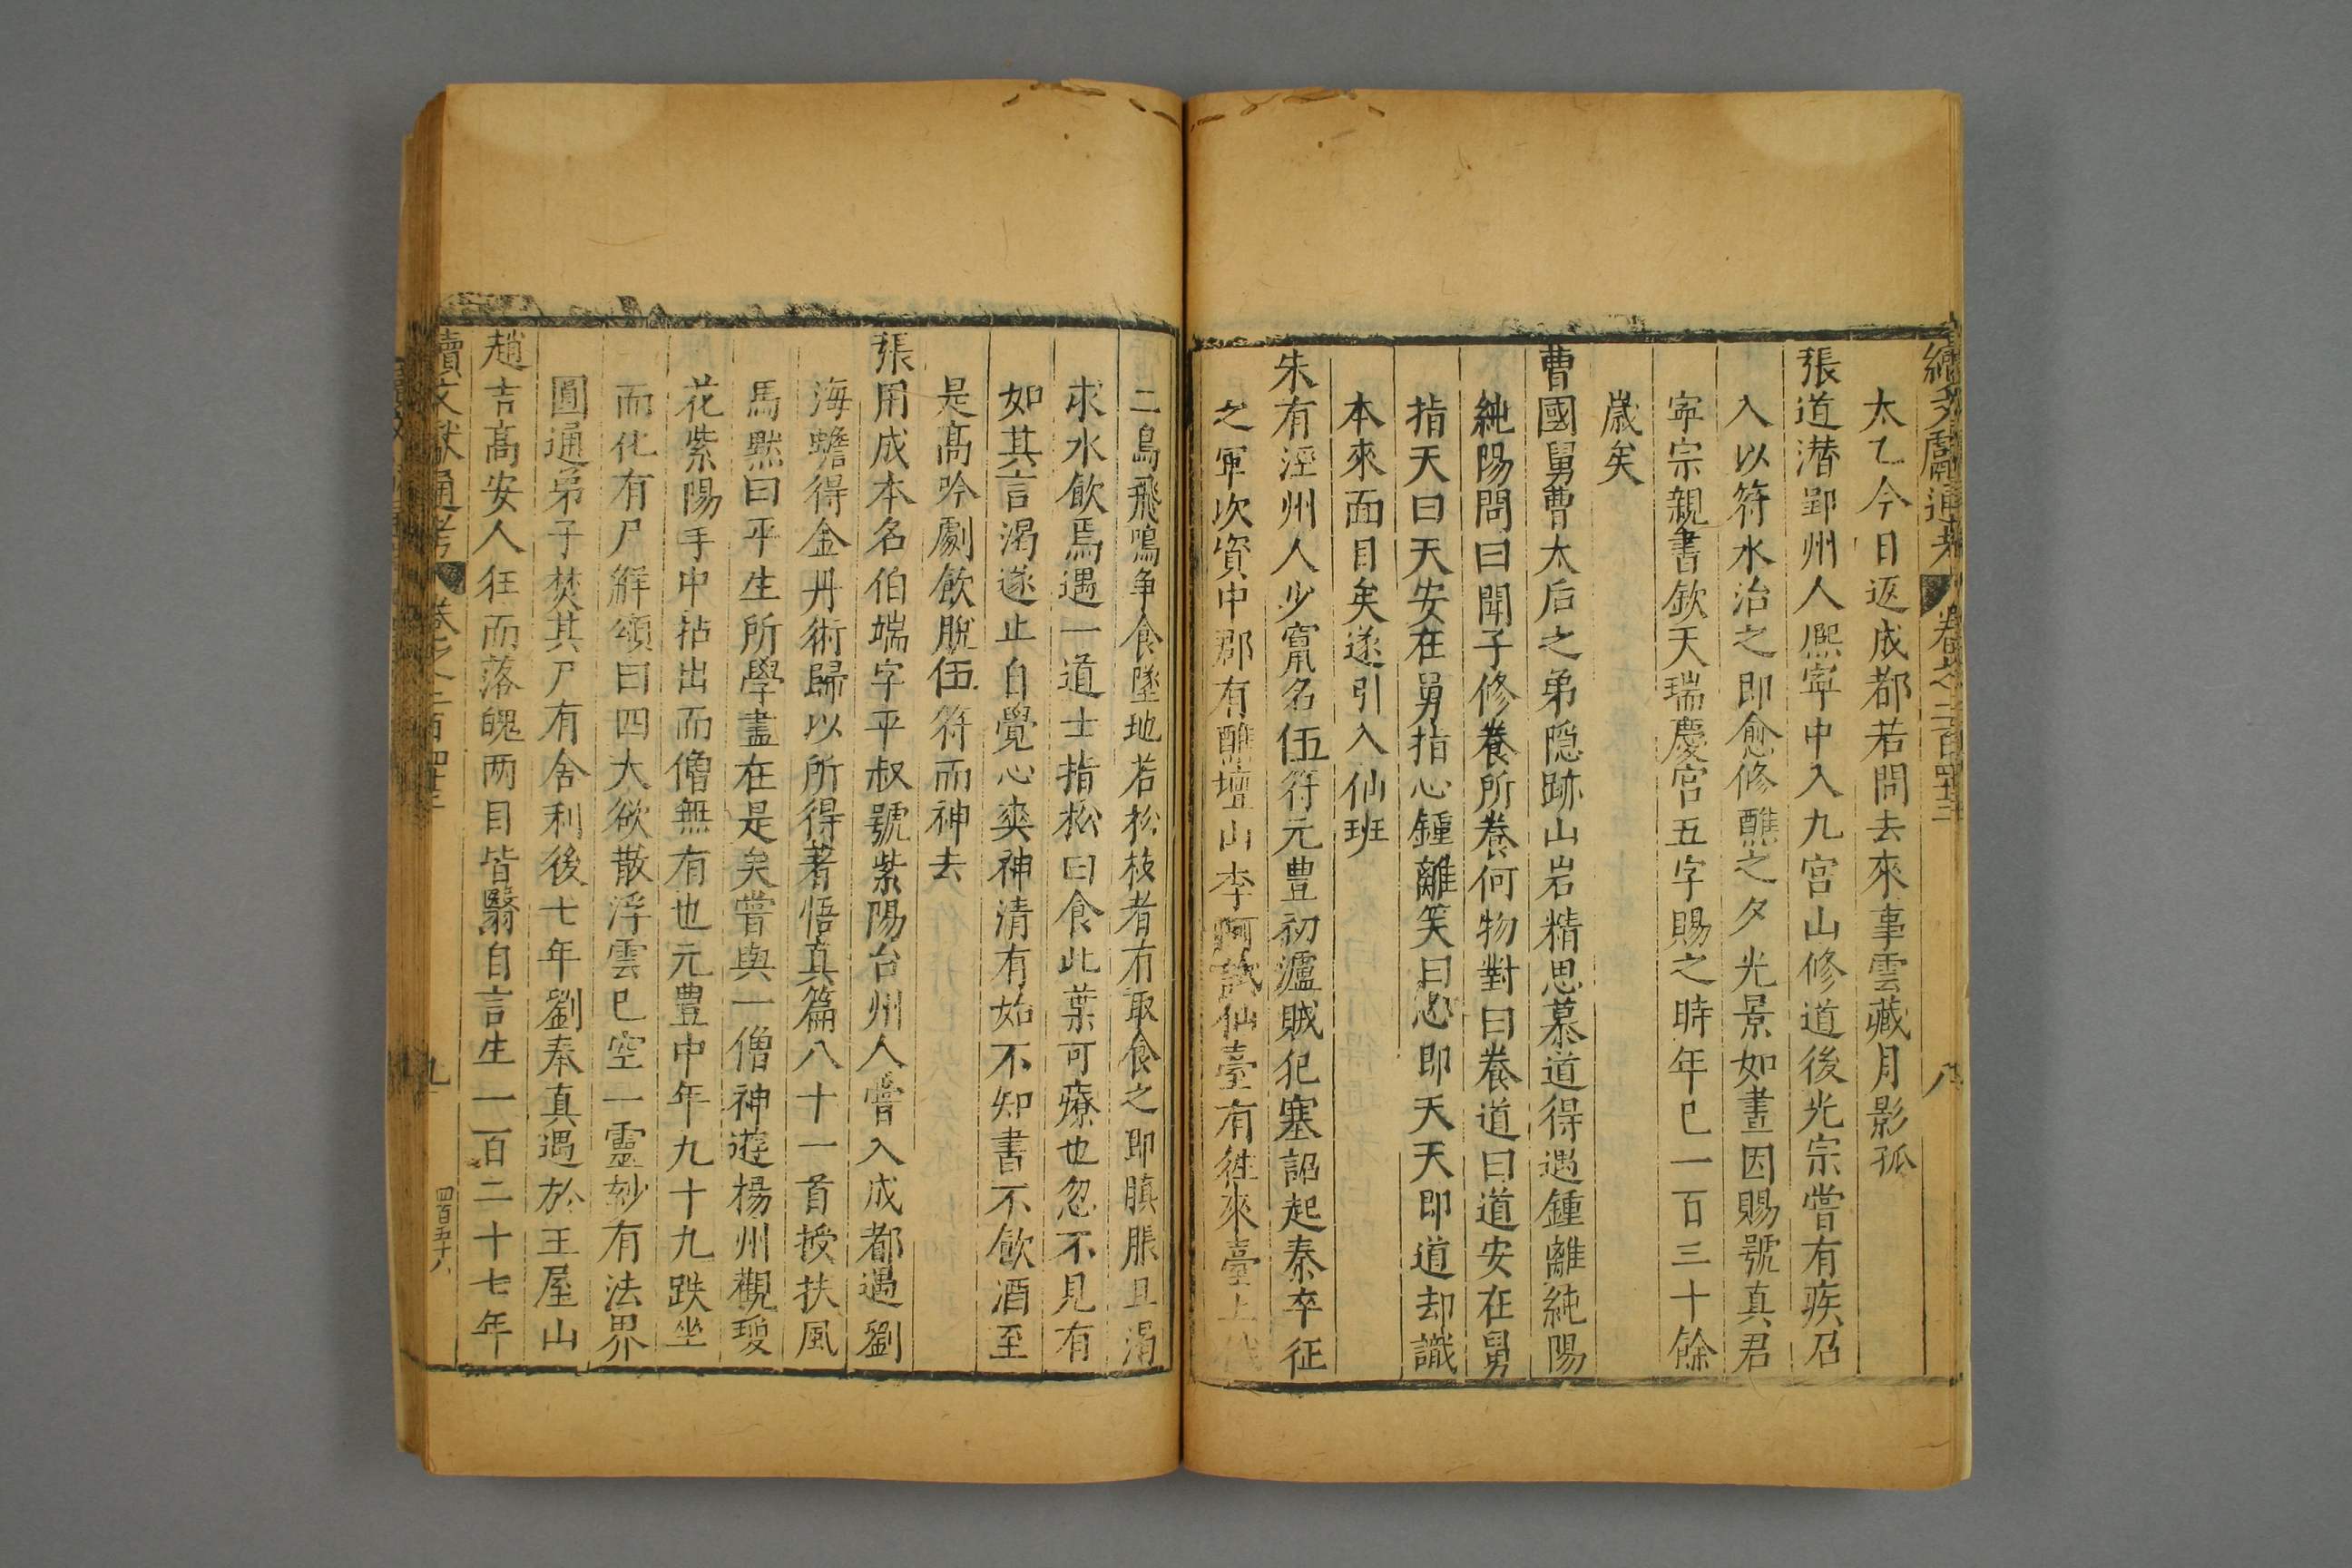 續文獻通考 卷之二百四十三 八
太乙今日返成都若問去來事雲藏月影孤
張道潛郢州人熈寧中入九宫山修道後光宗嘗有疾召
入以符水治之即愈修醮之夕光景如晝因賜號真君
寧宗親書欽天瑞慶宫五字賜之時年已一百三十餘
歲矣
曹國舅曹太后之弟隐跡山岩精思慕道得遇鍾離純陽
純陽問曰聞子修養所養何物對曰養道曰道安在舅
指天曰天安在舅指心鍾離笑曰心即天天即道却識
本來面目矣遂引入仙班
朱有涇州人少窮名伍符元豊初瀘賊犯塞詔起秦卒征
之軍次資中郡有醮壇山李阿試仙臺有徃來臺上
二鳥飛鳴争食墜地若松枝者有取食之即瞋脹且渴
求水飲焉遇一道士指松曰食此葉可療也忽不見有
如其言渴遂止自覺心爽神清有始不知書不飲酒至
是高吟劇飲脱伍符而神去
張用成本名伯端字平叔號紫陽台州人嘗入成都遇劉
海蟾得金丹術歸以所得著悟真篇八十一首授扶風
馬默曰平生所學盡在是矣嘗與一僧神遊楊州觀瓊
花紫陽手中拈出而僧無有也元豊中年九十九趺坐
而化有尸解頌曰四大欲散浮雲已空一靈玅有法界
圓通弟子焚其尸有舍利後七年劉奉真遇於王屋山
趙吉高安人狂而落魄两目皆翳自言生一百二十七年
續文獻通考 卷之二百四十三 九 四百五十八